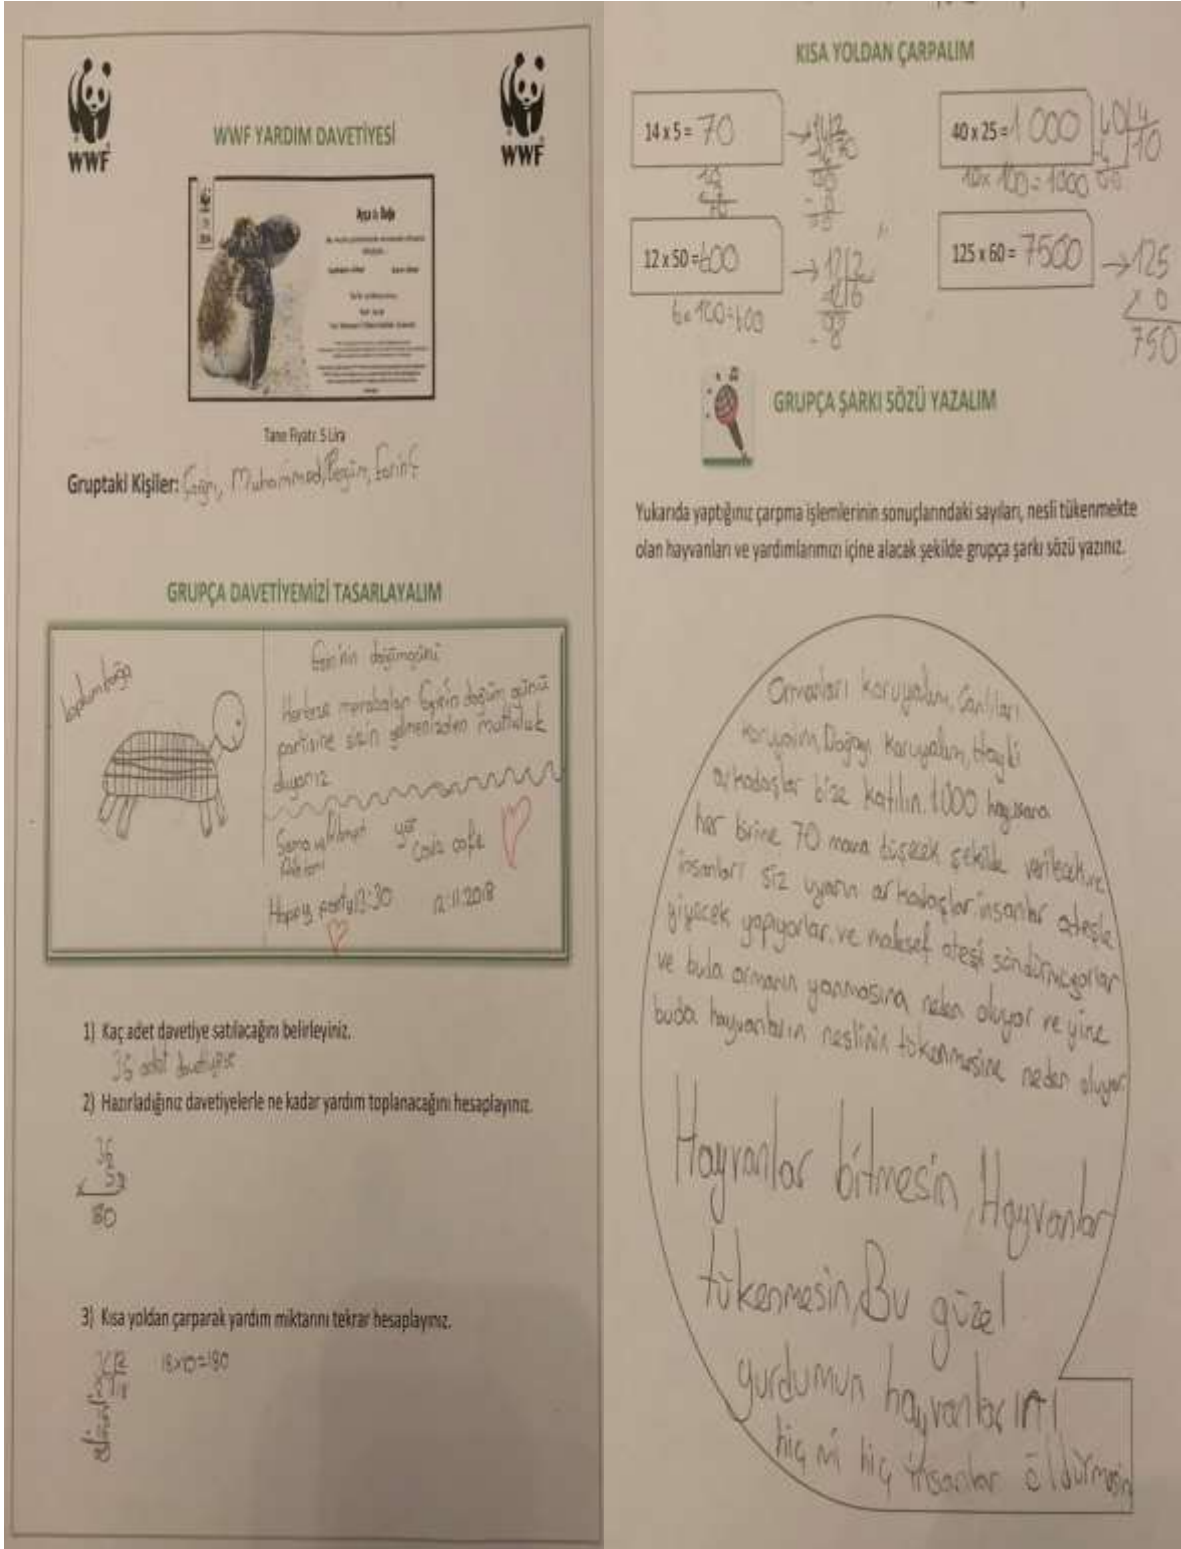 WWF
WWF
WWF YARDIM DAVETİYESİ
Tane Fiyatı: 5 Lira
Gruptaki Kişiler: Çağrı, Muhammed, Begüm,
GRUPÇA DAVETİYEMİZİ TASARLAYALIM
doğumgünü
Herkese merabalar doğum günü
partisine sizin gelmenizden mutluluk
duyarız
yer
cafe
Happy party 12:30 12.11.2018
1) Kaç adet davetiye satılacağını belirleyiniz.
36 adet davetiyese
2) Hazırladığınız davetiyelerle ne kadar yardım toplanacağını hesaplayınız.
36
x 5
180
3) Kısa yoldan çarparak yardım miktarını tekrar hesaplayınız.
36 2
18 18x10=180
KISA YOLDAN ÇARPALIM
14 x 5 = 70
40 x 25 = 1000
40 4
10
10x 100=1000
12 x 50 = 600
12 2
6
6x100=600
125 x 60 = 7500
125
x 6
750
GRUPÇA ŞARKI SÖZÜ YAZALIM
Yukarıda yaptığınız çarpma işlemlerinin sonuçlarındaki sayıları, nesli tükenmekte
olan hayvanları ve yardımlarımızı içine alacak şekilde grupça şarkı sözü yazınız.
Ormanları koruyalım, Canlıları
koruyalım, Doğayı koruyalım, Haydi
arkadaşlar bize katılın. 1000 hayvana
her birine 70 mama düşecek şekilde verilecek ve
insanları siz uyarın arkadaşlar. insanlar ateşle
yiyecek yapıyorlar. ve malesef ateşi söndürmüyorlar
ve buda ormanın yanmasına neden oluyor ve yine
buda hayvanların neslinin tükenmesine neden oluyor
Hayvanlar bitmesin, Hayvanlar
tükenmesin, Bu güzel
yurdumun hayvanlarını
hiç mi hiç insanlar öldürmesin